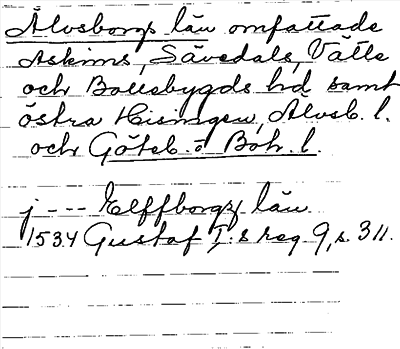 Älvsborgs län omfattade
Askims, Sävedals, Vättle
och Bollebygds hd samt
östra Hisingen, Älvsb. l.
och Göteb. o Boh. l.
j --- Elffborgz län
1534 Gustaf I:s reg 9, s 311.